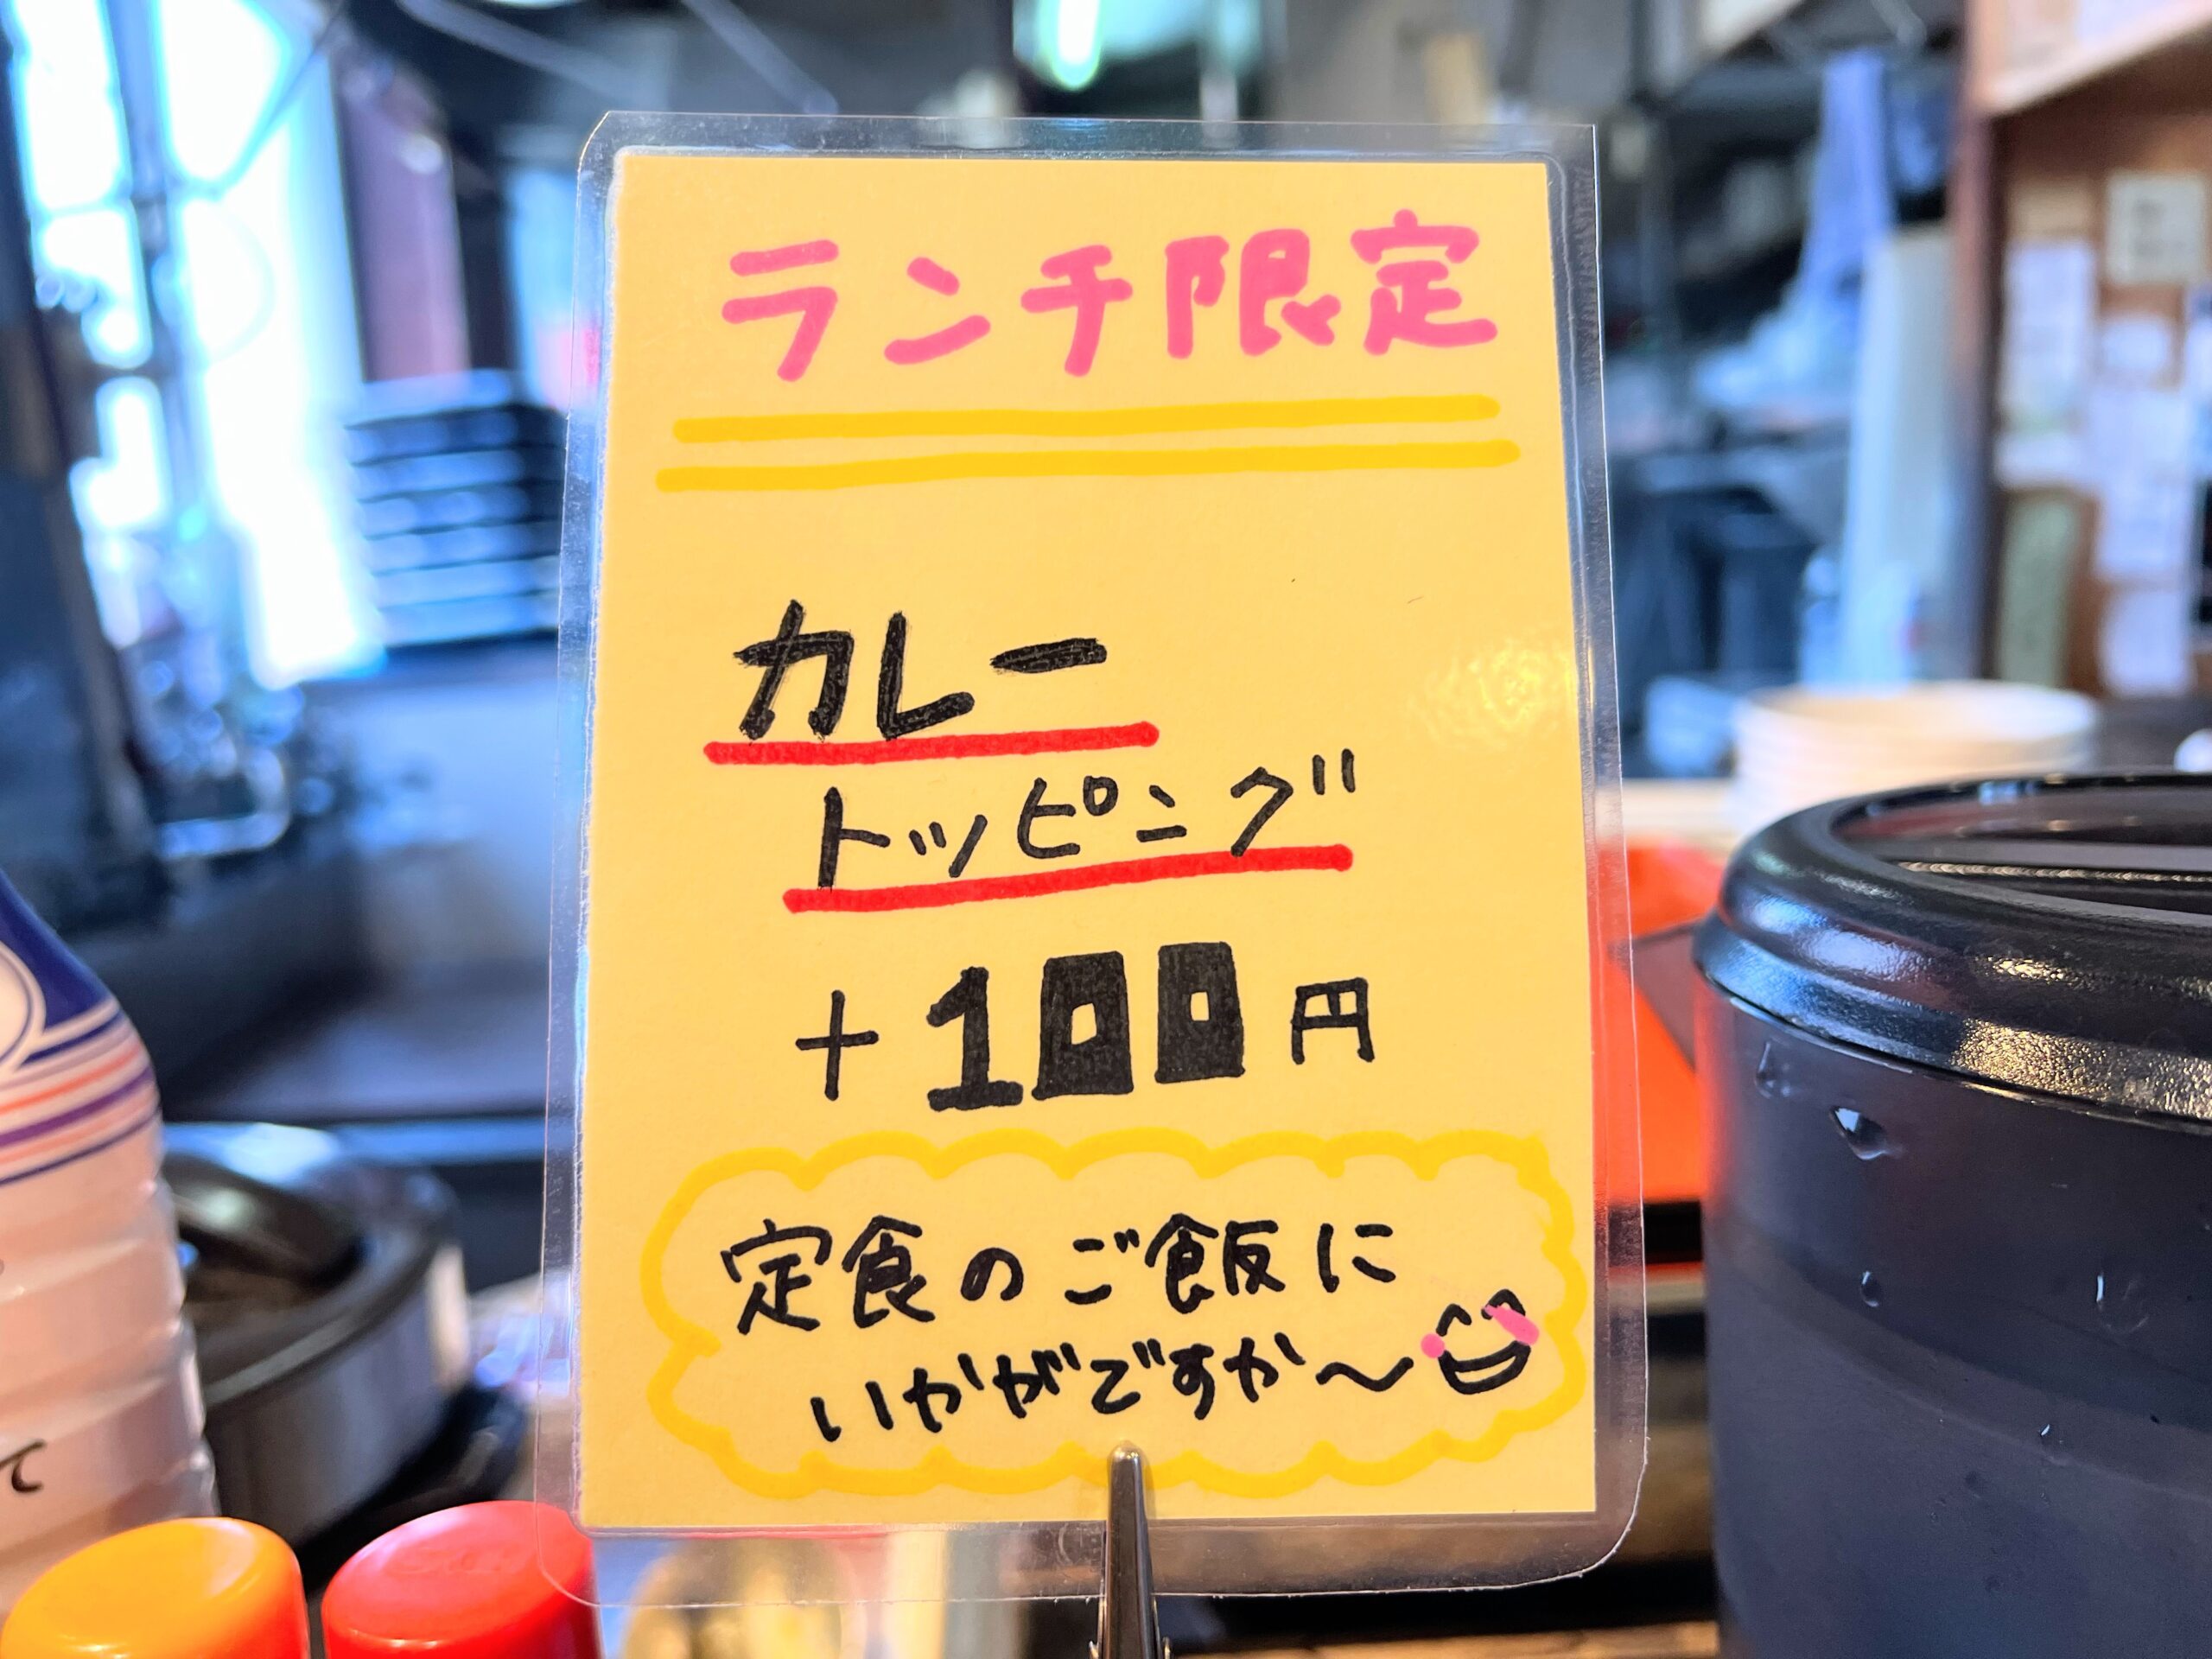 ランチ限定
カレー
トッピング
+100円
定食のご飯に
いかがですか〜
て